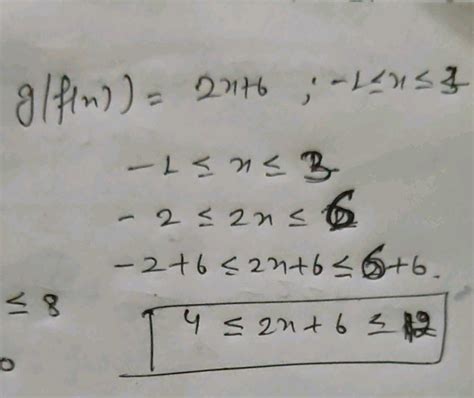 g(f(x)) = 2x+6 ; -1≤x≤3
-1 ≤ x ≤ 3
-2 ≤ 2x ≤ 6
-2+6 ≤ 2x+6 ≤ 6+6.
≤ 8
4 ≤ 2x+6 ≤ 12
0